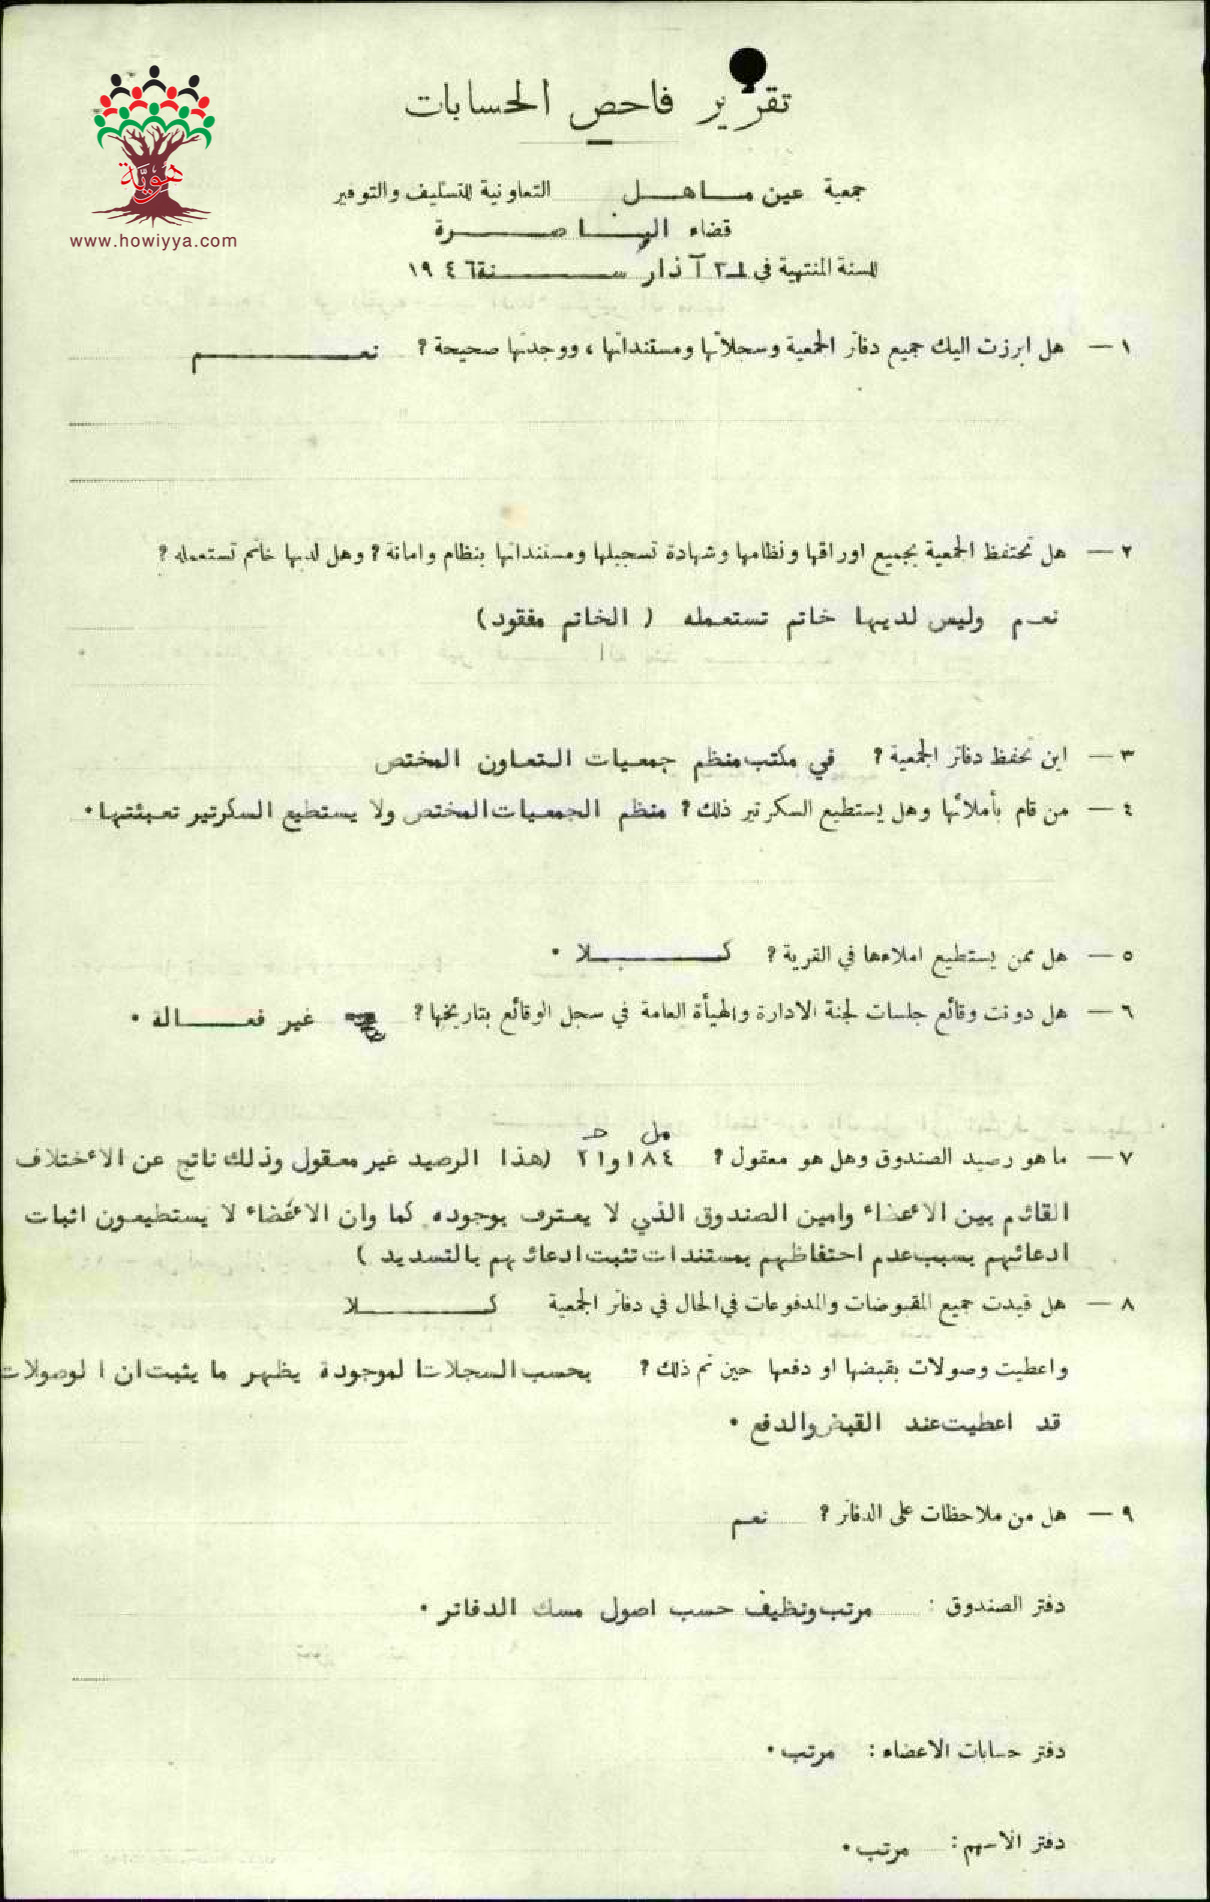 هوية
www.howiyya.com
تقرير فاحص الحسابات
جمعية عين ماهل التعاونية للتسليف والتوفير
قضاء الناصرة
للسنة المنتهية في ٣١ آذار سنة ١٩٤٦
١ — هل ابرزت اليك جميع دفاتر الجمعية وسجلاتها ومستنداتها ، ووجدتها صحيحة ؟ نعم
٢ — هل تحتفظ الجمعية بجميع اوراقها ونظامها وشهادة تسجيلها ومستنداتها بنظام وامانة ؟ وهل لديها خاتم تستعمله ؟
نعم وليس لديها خاتم تستعمله ( الخاتم مفقود)
٣ — اين تحفظ دفاتر الجمعية ؟ في مكتب منظم جمعيات التعاون المختص
٤ — من قام بأملائها وهل يستطيع السكرتير ذلك ؟ منظم الجمعيات المختص ولا يستطيع السكرتير تعبئتها ٠
٥ — هل ممن يستطيع املاءها في القرية ؟ كلا ٠
٦ — هل دونت وقائع جلسات لجنة الادارة والهيأة العامة في سجل الوقائع بتاريخها ؟ غير فعالة ٠
مل ج
٧ — ما هو رصيد الصندوق وهل هو معقول ؟ ١٨٤ و٢١ (هذا الرصيد غير معقول وذلك ناتج عن الاختلاف
القائم بين الاعضاء وامين الصندوق الذي لا يعترف بوجوده كما وان الاعضاء لا يستطيعون اثبات
ادعائهم بسبب عدم احتفاظهم بمستندات تثبت ادعائهم بالتسديد )
٨ — هل قيدت جميع المقبوضات والمدفوعات في الحال في دفاتر الجمعية كلا
واعطيت وصولات بقبضها او دفعها حين تم ذلك ؟ بحسب السجلات الموجودة يظهر ما يثبت ان الوصولات
قد اعطيت عند القبض والدفع ٠
٩ — هل من ملاحظات على الدفاتر ؟ نعم
دفتر الصندوق : مرتب ونظيف حسب اصول مسك الدفاتر ٠
دفتر حسابات الاعضاء : مرتب ٠
دفتر الاسهم : مرتب ٠